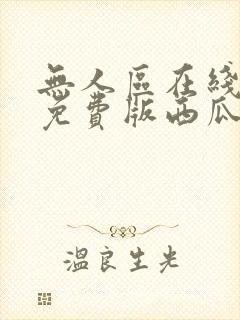 無人區在綫
免費版西瓜
溫良生光